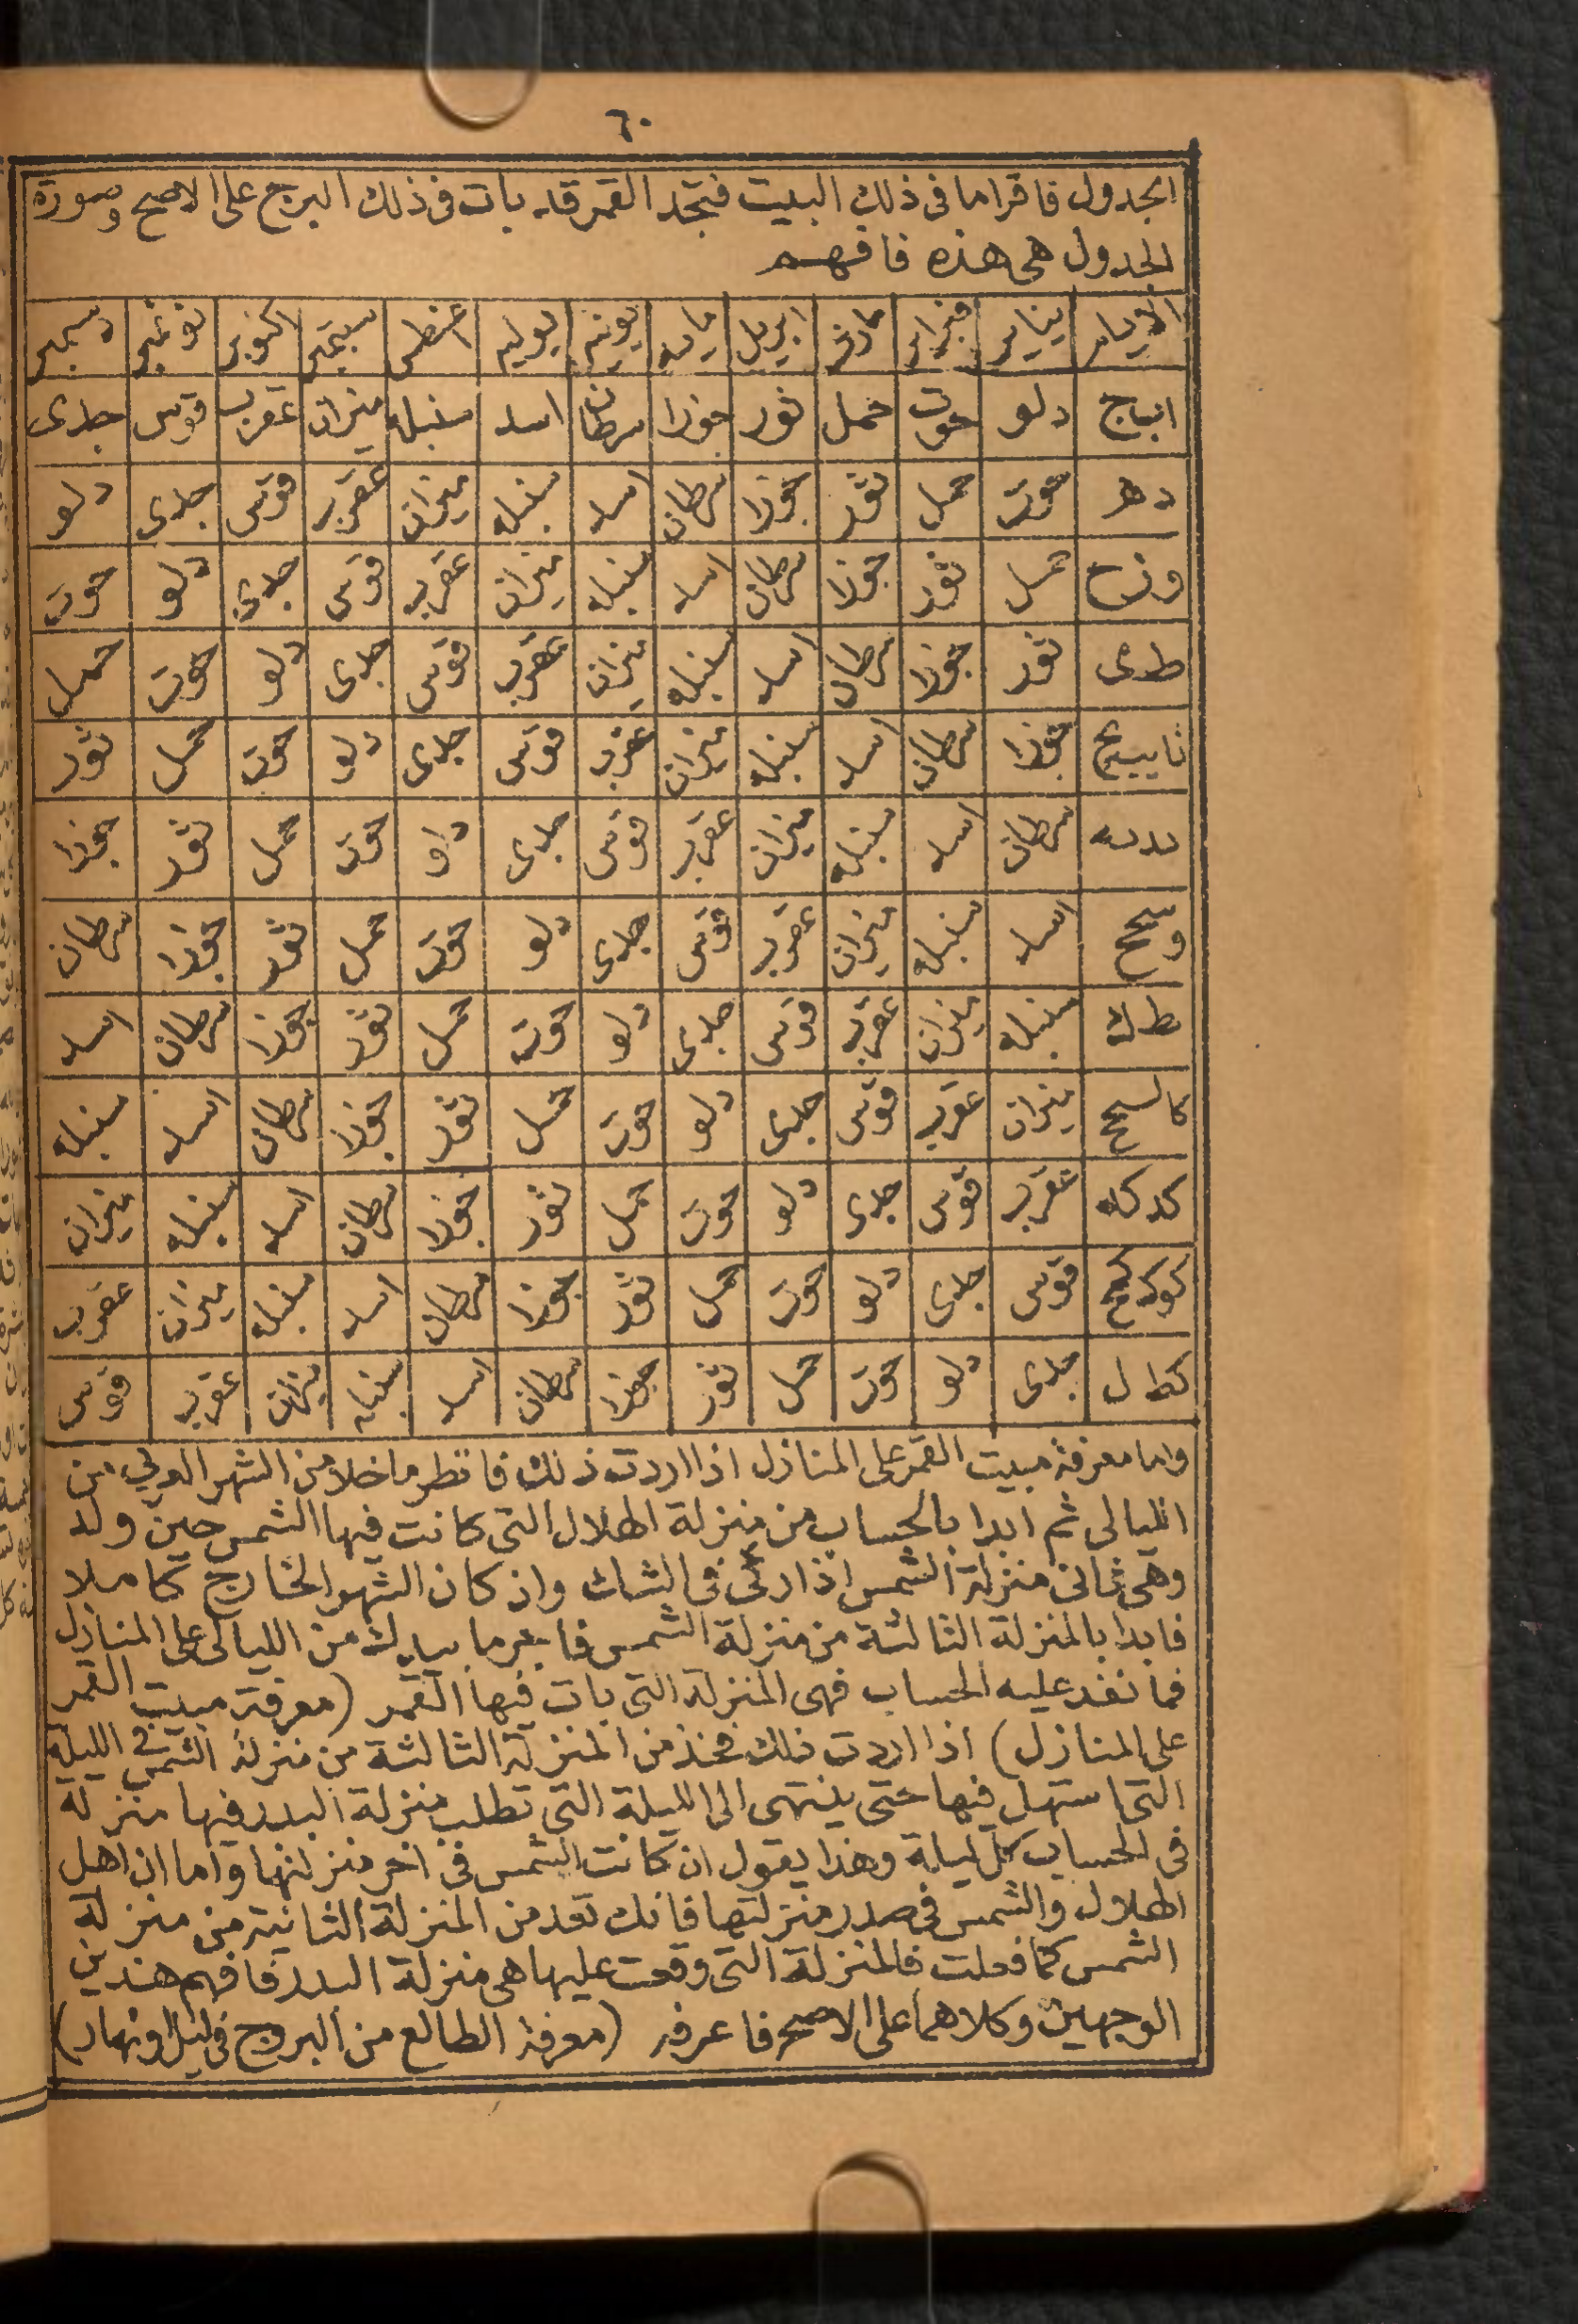 ٦٠
الجدول فاقرا ما فى ذلك البيت فتجد القمر قد بات فى ذلك البرج على الاصح وصورة
الجدول هى هذه فافهم
الايام يناير فبراير مارس ابريل مايه يونيه يوليه اغسطس سبتمبر اكتوبر نوفمبر دسمبر
اب‍اج دلو حوت حمل ثور جوزا سرطان اسد سنبله ميزان عقرب قوس جدى
ده‍ حوت حمل ثور جوزا سرطان اسد سنبله ميزان عقرب قوس جدى دلو
وزح حمل ثور جوزا سرطان اسد سنبله ميزان عقرب قوس جدى دلو حوت
طى ثور جوزا سرطان اسد سنبله ميزان عقرب قوس جدى دلو حوت حمل
جوزا سرطان اسد سنبله ميزان عقرب قوس جدى دلو حوت حمل ثور
يديه سرطان اسد سنبله ميزان عقرب قوس جدى دلو حوت حمل ثور جوزا
اسد سنبله ميزان عقرب قوس جدى دلو حوت حمل ثور جوزا سرطان
يطك سنبله ميزان عقرب قوس جدى دلو حوت حمل ثور جوزا سرطان اسد
ميزان عقرب قوس جدى دلو حوت حمل ثور جوزا سرطان اسد سنبله
كدكه عقرب قوس جدى دلو حوت حمل ثور جوزا سرطان اسد سنبله ميزان
كوكزكح قوس جدى دلو حوت حمل ثور جوزا سرطان اسد سنبله ميزان عقرب
كطل جدى دلو حوت حمل ثور جوزا سرطان اسد سنبله ميزان عقرب قوس
واما معرفة مبيت القمر على المنازل اذا اردت ذلك فانظر ما خلا من الشهر العربي من
الليالى ثم ابدا بالحساب من منزلة الهلال التى كانت فيها الشمس حين ولد
وهى ثانى منزلة الشمس اذا رئى فى الشك وان كان الشهر الخارج كاملا
فابدا بالمنزلة الثالثة من منزلة الشمس فاجر ما بيدك من الليالى على المنازل
فما نفد عليه الحساب فهى المنزلة التى بات فيها القمر (معرفة مبيت القمر
على المنازل) اذا اردت ذلك فخذ من المنزلة الثالثة من منزلة الشمس فى الليلة
التى استهل فيها حتى ينتهى الى الليلة التى تطلب منزلة البدر فيها منزلة
فى الحساب كل ليلة وهذا يقول ان كانت الشمس فى اخر منزلتها واما ان اهل
الهلال والشمس فى صدر منزلتها فانك تعد من المنزلة الثانية من منزلة
الشمس كما فعلت فالمنزلة التى وقعت عليها هى منزلة البدر فافهم هذين
الوجهين وكلاهما على الاصح فاعرفه (معرفة الطالع من البروج فى ليل او نهار)